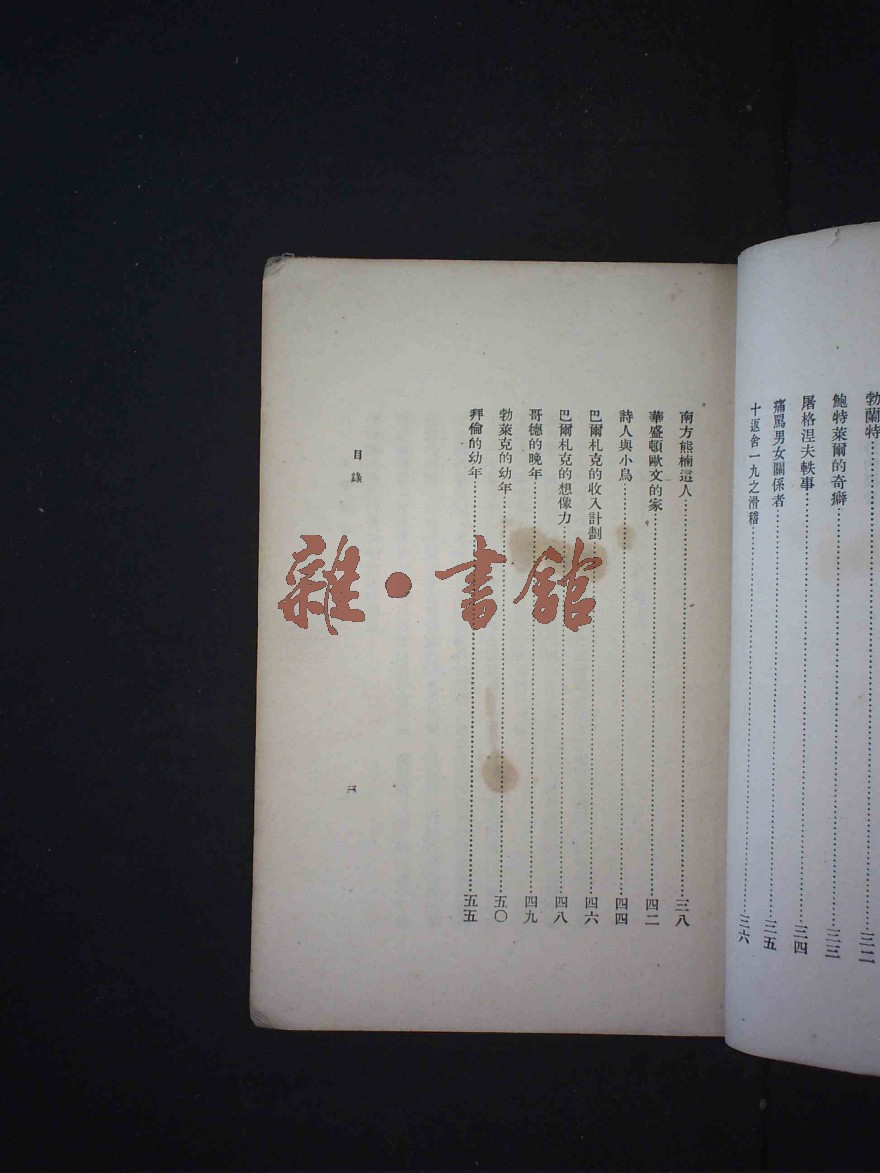 勃蘭特………三二
鮑特萊爾的奇癖………三三
屠格涅夫軼事………三四
痛罵男女關係者………三五
十返舍一九之滑稽………三六
南方熊楠這人………三八
華盛頓歐文的家………四二
詩人與小鳥………四四
巴爾札克的收入計劃………四六
巴爾札克的想像力………四八
哥德的晚年………四九
勃萊克的幼年………五〇
拜倫的幼年………五五
目錄
三
雜·書館